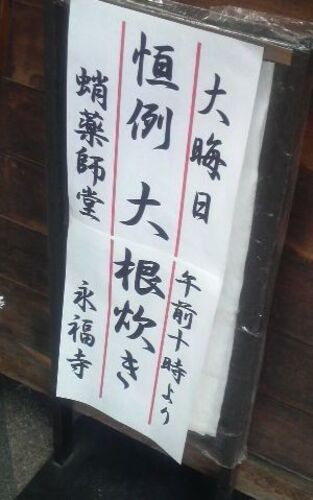 大晦日 午前十時より
恒例 大根炊き
蛸薬師堂 永福寺